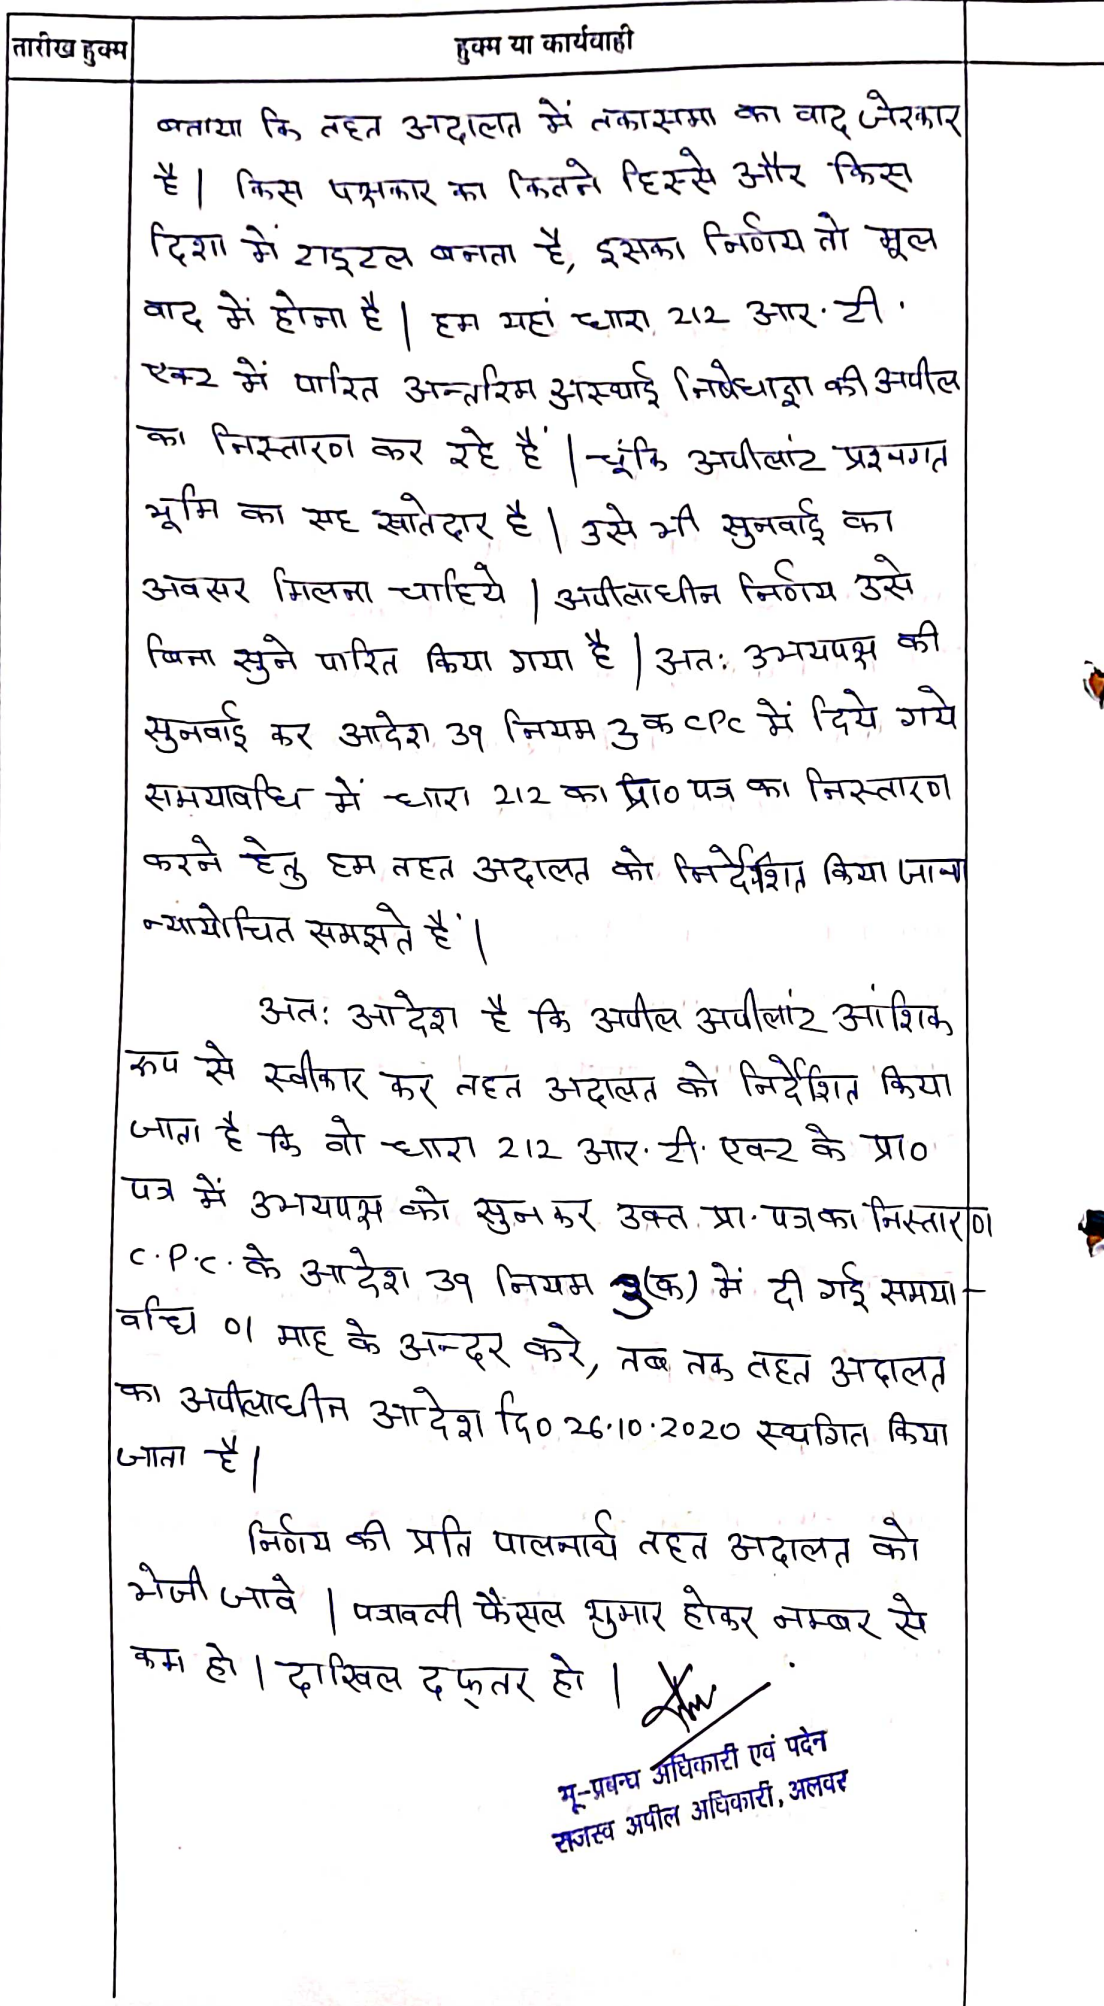 तारीख हुक्म
हुक्म या कार्यवाही
बताया कि तहत अदालत में तकासमा का वाद जेरकार
है | किस पक्षकार का कितने हिस्से और किस
दिशा में टाइटल बनता है, इसका निर्णय तो मूल
वाद में होना है | हम यहां धारा 212 आर. टी.
एक्ट में पारित अन्तरिम अस्थाई निषेधाज्ञा की अपील
का निस्तारण कर रहे हैं | चूंकि अपीलांट प्रश्नगत
भूमि का सह खातेदार है | उसे भी सुनवाई का
अवसर मिलना चाहिये | अपीलाधीन निर्णय उसे
बिना सुने पारित किया गया है | अतः उभयपक्ष की
सुनवाई कर आदेश 39 नियम 3 क CPC में दिये गये
समयावधि में धारा 212 का प्रा० पत्र का निस्तारण
करने हेतु हम तहत अदालत को निर्देशित किया जाना
न्यायोचित समझते हैं |
अतः आदेश है कि अपील अपीलांट आंशिक
रूप से स्वीकार कर तहत अदालत को निर्देशित किया
जाता है कि वो धारा 212 आर. टी. एक्ट के प्रा०
पत्र में उभयपक्ष को सुनकर उक्त प्रा. पत्र का निस्तारण
C.P.C. के आदेश 39 नियम 3(क) में दी गई समया-
वधि 01 माह के अन्दर करे, तब तक तहत अदालत
का अपीलाधीन आदेश दि० 26.10.2020 स्थगित किया
जाता है |
निर्णय की प्रति पालनार्थ तहत अदालत को
भेजी जावे | पत्रावली फैसल शुमार होकर नम्बर से
कम हो | दाखिल दफ्तर हो |
भू-प्रबन्ध अधिकारी एवं पदेन
राजस्व अपील अधिकारी, अलवर